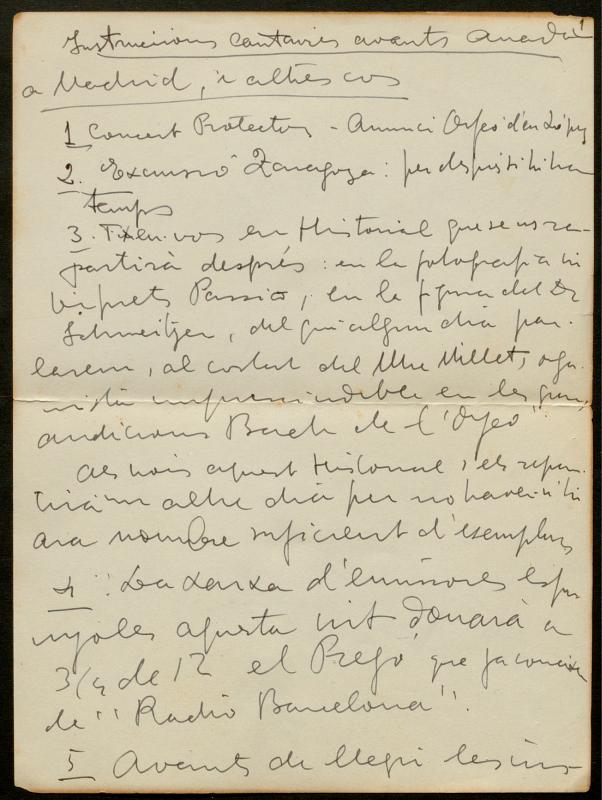 1
Instruccions cantaires avants anada
a Madrid, i altres cos
1 Concert Protectors - Anunci Orfeó d'en López
2. Excursió Zaragoza: per després hi ha
temps
3. Fixeu-vos en Historial que se us re-
partirà després: en la fotografia in
Passió, en la figura del Dr
Schweitzer, del qui algun dia par-
larem, al costat del Mtre Millet, orga-
nista imprescindible en les grans
audicions Bach de l'"Orfeó"
als nois aquest Historial s'els repar-
tirà un altre dia per no haver-n'hi
ara nombre suficient d'exemplars
4 : La xarxa d'emissores Espa-
nyoles aquesta nit donarà a
3/4 de 12 el Pregó, que ja coneixeu
de "Radio Barcelona".
5 Avants de llegir les ins-